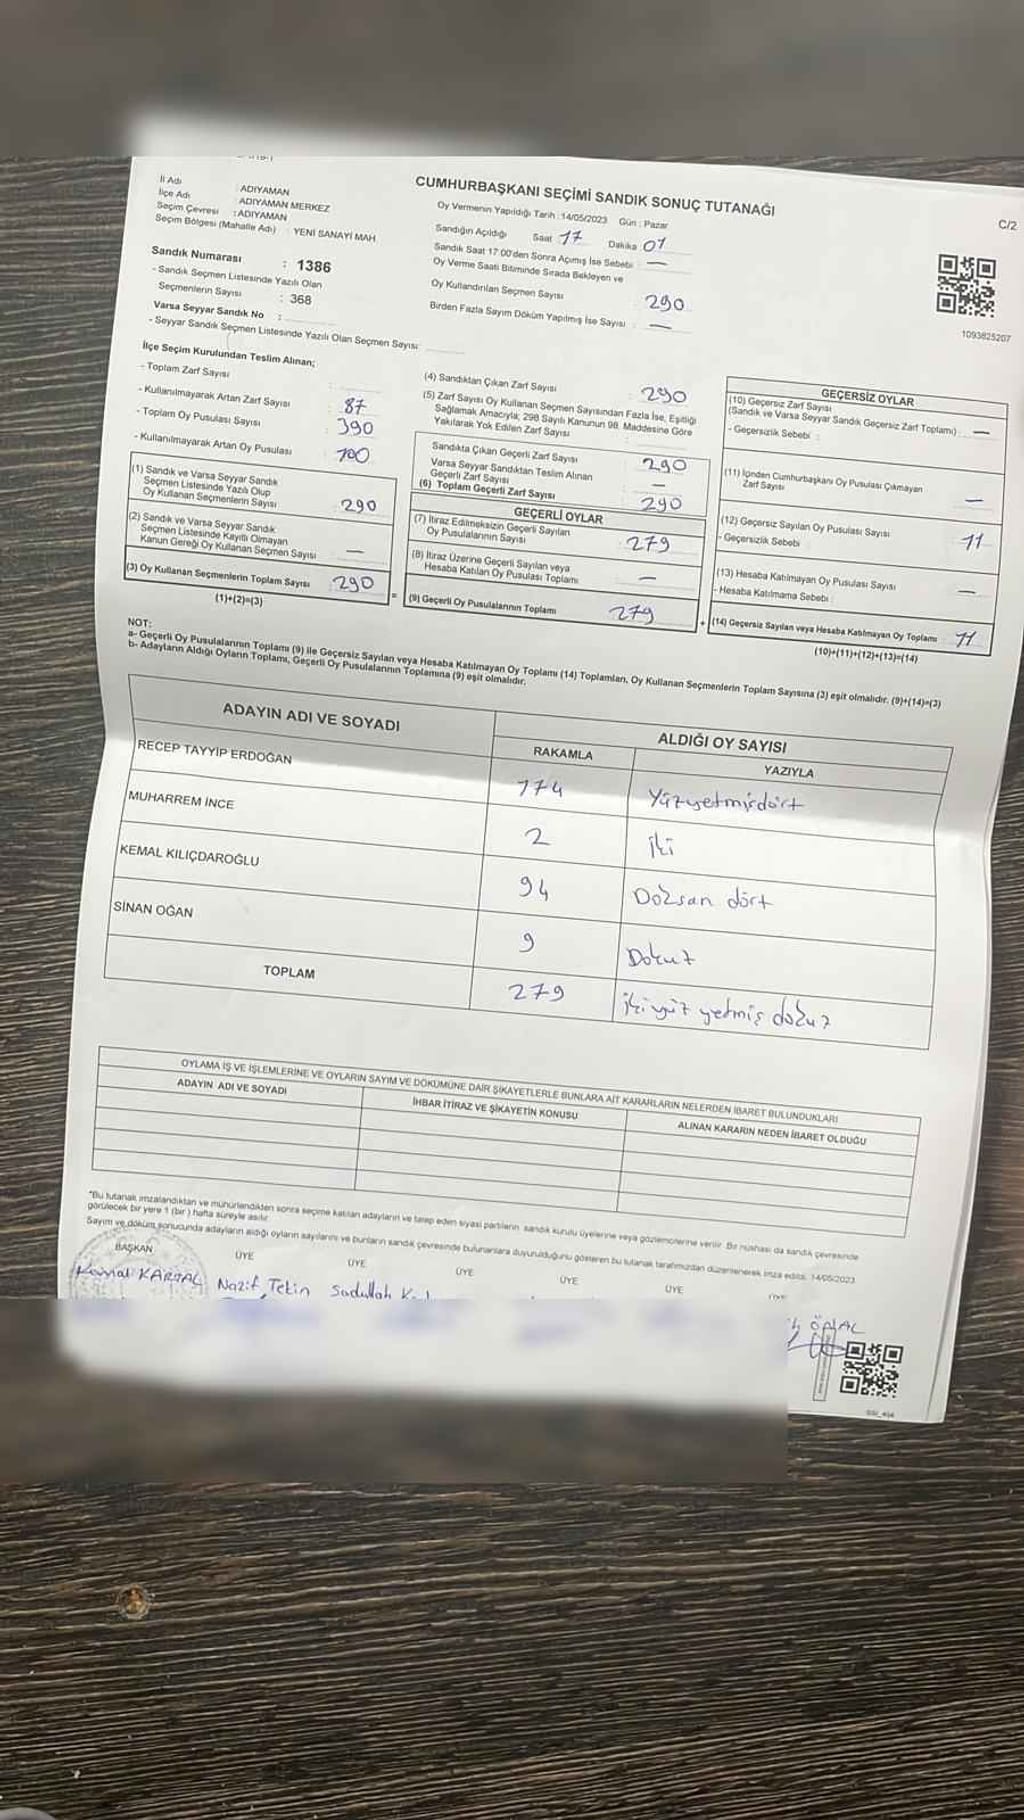 CUMHURBAŞKANI SEÇİMİ SANDIK SONUÇ TUTANAĞI
C/2
İl Adı : ADIYAMAN
İlçe Adı : ADIYAMAN MERKEZ
Seçim Çevresi : ADIYAMAN
Seçim Bölgesi (Mahalle Adı) : YENİ SANAYİ MAH
Oy Vermenin Yapıldığı Tarih :14/05/2023 Gün : Pazar
Sandığın Açıldığı Saat 17 Dakika 01
Sandık Saat 17:00'den Sonra Açılmış İse Sebebi : —
Oy Verme Saati Bitiminde Sırada Bekleyen ve
Oy Kullandırılan Seçmen Sayısı 290
Birden Fazla Sayım Döküm Yapılmış İse Sayısı : —
1093825207
Sandık Numarası : 1386
- Sandık Seçmen Listesinde Yazılı Olan
Seçmenlerin Sayısı : 368
Varsa Seyyar Sandık No :
- Seyyar Sandık Seçmen Listesinde Yazılı Olan Seçmen Sayısı:
İlçe Seçim Kurulundan Teslim Alınan;
- Toplam Zarf Sayısı :
- Kullanılmayarak Artan Zarf Sayısı : 87
- Toplam Oy Pusulası Sayısı : 390
- Kullanılmayarak Artan Oy Pusulası : 100
(1) Sandık ve Varsa Seyyar Sandık
Seçmen Listesinde Yazılı Olup
Oy Kullanan Seçmenlerin Sayısı : 290
(2) Sandık ve Varsa Seyyar Sandık
Seçmen Listesinde Kayıtlı Olmayan
Kanun Gereği Oy Kullanan Seçmen Sayısı : —
(3) Oy Kullanan Seçmenlerin Toplam Sayısı : 290
(1)+(2)=(3)
=
(4) Sandıktan Çıkan Zarf Sayısı : 290
(5) Zarf Sayısı Oy Kullanan Seçmen Sayısından Fazla İse, Eşitliği
Sağlamak Amacıyla; 298 Sayılı Kanunun 98. Maddesine Göre
Yakılarak Yok Edilen Zarf Sayısı :
Sandıkta Çıkan Geçerli Zarf Sayısı : 290
Varsa Seyyar Sandıktan Teslim Alınan
Geçerli Zarf Sayısı : —
(6) Toplam Geçerli Zarf Sayısı : 290
GEÇERLİ OYLAR
(7) İtiraz Edilmeksizin Geçerli Sayılan
Oy Pusulalarının Sayısı : 279
(8) İtiraz Üzerine Geçerli Sayılan veya
Hesaba Katılan Oy Pusulası Toplamı : —
(9) Geçerli Oy Pusulalarının Toplamı 279
+
GEÇERSİZ OYLAR
(10) Geçersiz Zarf Sayısı
(Sandık ve Varsa Seyyar Sandık Geçersiz Zarf Toplamı) : —
- Geçersizlik Sebebi :
(11) İçinden Cumhurbaşkanı Oy Pusulası Çıkmayan
Zarf Sayısı —
(12) Geçersiz Sayılan Oy Pusulası Sayısı 11
- Geçersizlik Sebebi
(13) Hesaba Katılmayan Oy Pusulası Sayısı —
- Hesaba Katılmama Sebebi :
(14) Geçersiz Sayılan veya Hesaba Katılmayan Oy Toplamı 11
(10)+(11)+(12)+(13)=(14)
NOT:
a- Geçerli Oy Pusulalarının Toplamı (9) ile Geçersiz Sayılan veya Hesaba Katılmayan Oy Toplamı (14) Toplamları, Oy Kullanan Seçmenlerin Toplam Sayısına (3) eşit olmalıdır. (9)+(14)=(3)
b- Adayların Aldığı Oyların Toplamı, Geçerli Oy Pusulalarının Toplamına (9) eşit olmalıdır.
ADAYIN ADI VE SOYADI
ALDIĞI OY SAYISI
RAKAMLA YAZIYLA
RECEP TAYYİP ERDOĞAN 174 Yüzyetmişdört
MUHARREM İNCE 2 iki
KEMAL KILIÇDAROĞLU 94 Doksan dört
SİNAN OĞAN 9 Dokuz
TOPLAM 279 ikiyüz yetmiş dokuz
OYLAMA İŞ VE İŞLEMLERİNE VE OYLARIN SAYIM VE DÖKÜMÜNE DAİR ŞİKAYETLERLE BUNLARA AİT KARARLARIN NELERDEN İBARET BULUNDUKLARI
ADAYIN ADI VE SOYADI İHBAR İTİRAZ VE ŞİKAYETİN KONUSU ALINAN KARARIN NEDEN İBARET OLDUĞU
*Bu tutanak imzalandıktan ve mühürlendikten sonra seçime katılan adayların ve talep eden siyasi partilerin sandık kurulu üyelerine veya gözlemcilerine verilir. Bir nüshası da sandık çevresinde
görülecek bir yere 1 (bir) hafta süreyle asılır.
Sayım ve döküm sonucunda adayların aldığı oyların sayılarını ve bunların sandık çevresinde bulunanlara duyurulduğunu gösteren bu tutanak tarafımızdan düzenlenerek imza edildi. 14/05/2023
BAŞKAN ÜYE ÜYE ÜYE ÜYE ÜYE ÜYE
Kemal KARTAL Nazif Tekin Sadullah
ÖNAL